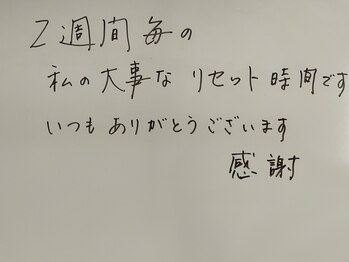 2週間毎の
私の大事な リセット時間です
いつも ありがとうございます
感謝